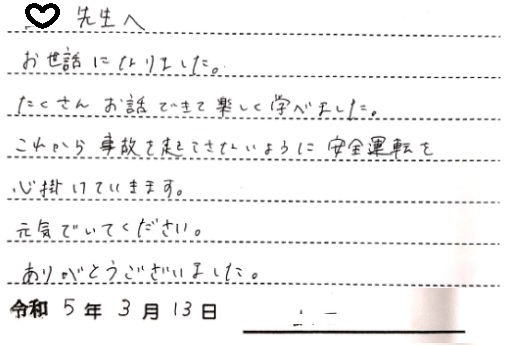 先生へ
お世話になりました。
たくさんお話できて楽しく学べました。
これから事故を起こさないように安全運転を
心掛けていきます。
元気でいてください。
ありがとうございました。
令和5年3月13日